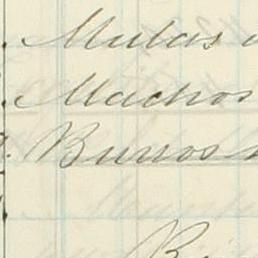 Mulas
Machos
Burros